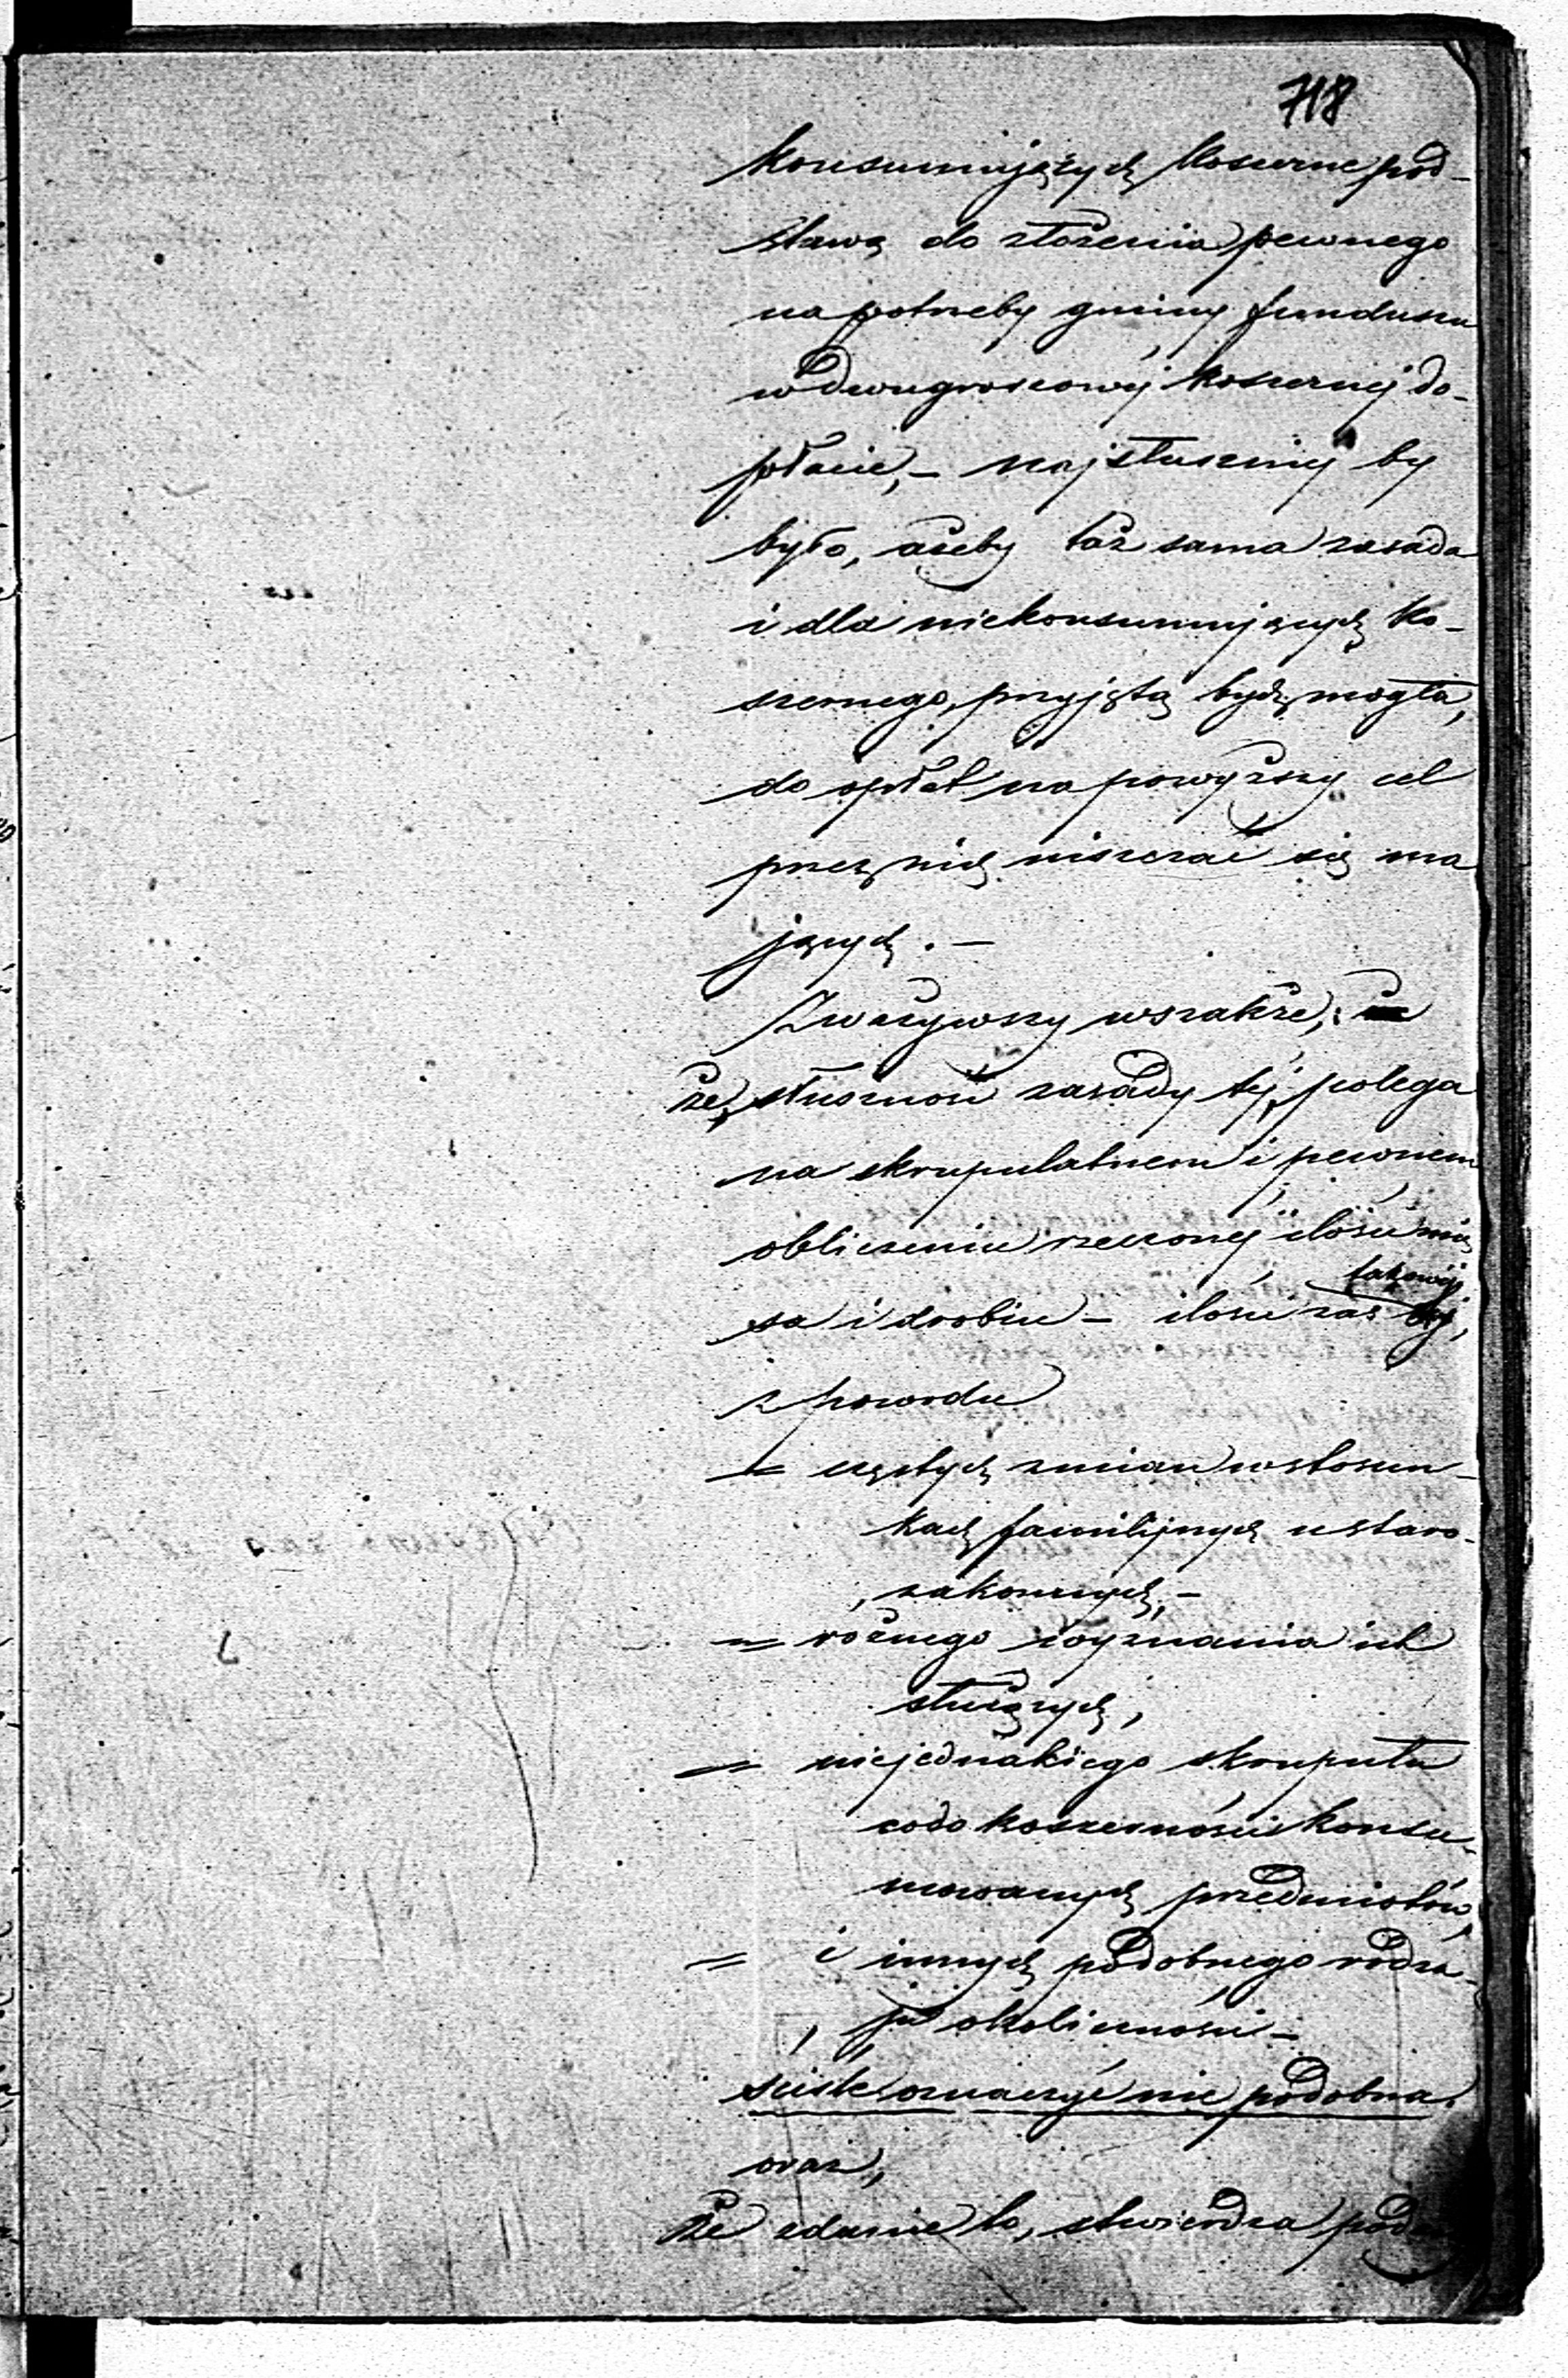 718
konsumujących koszerne pod-
stawą do złożenia pewnego
na potrzeby gminy funduszu
w dwugroszowéj koszernéj do-
płacie, – najsłuszniéj by
było, ażeby taż sama zasada
i dla niekonsumujących ko-
szernego, przyjętą bydź mogła,
do opłat na powyższy cel
przez nich uiszczać się ma
jących. –
Zważywszy wszakże;
że, słuszność zasady téj, polega
na skrupulatnem i pewnem
obliczeniu rzeczonéj ilości mię
sa i drobiu – ilości zaś takowéj,
z powodu
= częstych zmian w stosun-
kach familijnych u staro-
zakonnych, –
= różnego wyznania ich
służących,
= niejednakiego skrupułu
co do koszerności konsu-
mowanych przedmiotów,
= i innych podobnego rodza-
ju okoliczności –
ściśle oznaczyć nie podobna.
oraz,
Że zdanie to, stwierdza